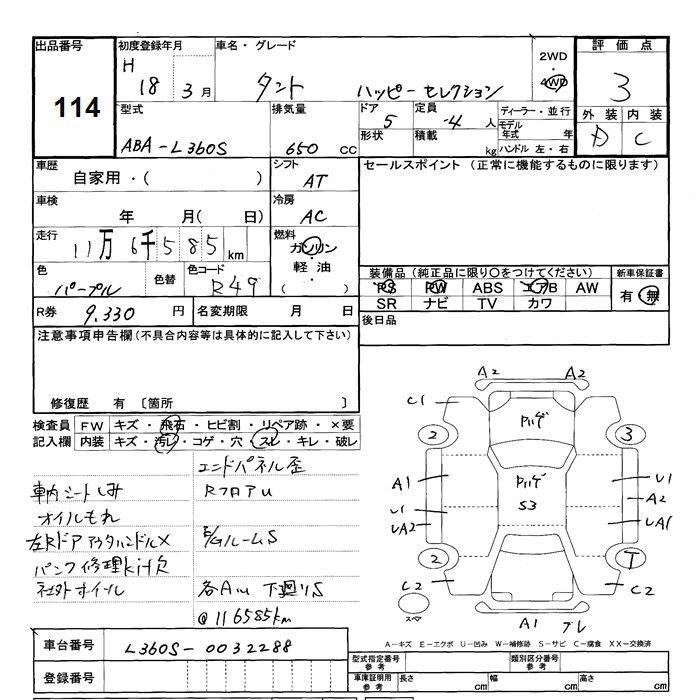 出品番号 初度登録年月 車名・グレード 評価点
114
H 18 3月 タント ハッピーセレクション
2WD
・
4WD
3
外装 内装
D C
型式 排気量 ドア 定員 ディーラー・並行
ABA-L360S 650 CC 5 4 人
形状 積載 kg
モデル年式 年
ハンドル 左・右
車歴 シフト セールスポイント (正常に機能するものに限ります)
自家用・( ) AT
車検 冷房
年 月( 日) AC
走行 燃料
11万6千585km ガソリン
軽油
( )
色 色替 色コード
パープル R49
装備品 (純正品に限り○をつけてください) 新車保証書
PS PW ABS エアB AW
SR ナビ TV カワ
有・無
R券 9,330 円 名変期限 月 日
後日品
注意事項申告欄 (不具合内容等は具体的に記入して下さい)
修復歴 有 〔箇所 〕
検査員 FW キズ・飛石・ヒビ割・リペア跡・×要
記入欄 内装 キズ・汚レ・コゲ・穴・スレ・キレ・破レ
エンドパネル歪
車内シートしみ RフロアU
オイルもれ
左Rドアアウタハンドル× E/GルームS
パンク修理kit欠
社外ホイル 各AU 下廻りS
@116585km
A2 A2
C1 Pハゲ
2 3
A1 Pハゲ U1
S3 A2
U1 UA1
UA2
2 T
C2 C2
スペア
A1 ブレ
A-キズ E-エクボ U-凹み W-補修跡 S-サビ C-腐食 XX-交換済
車台番号 L360S-0032288
登録番号
型式指定番号 参考 類別区分番号 参考
車庫証明用 参考 長さ cm 幅 cm 高さ cm